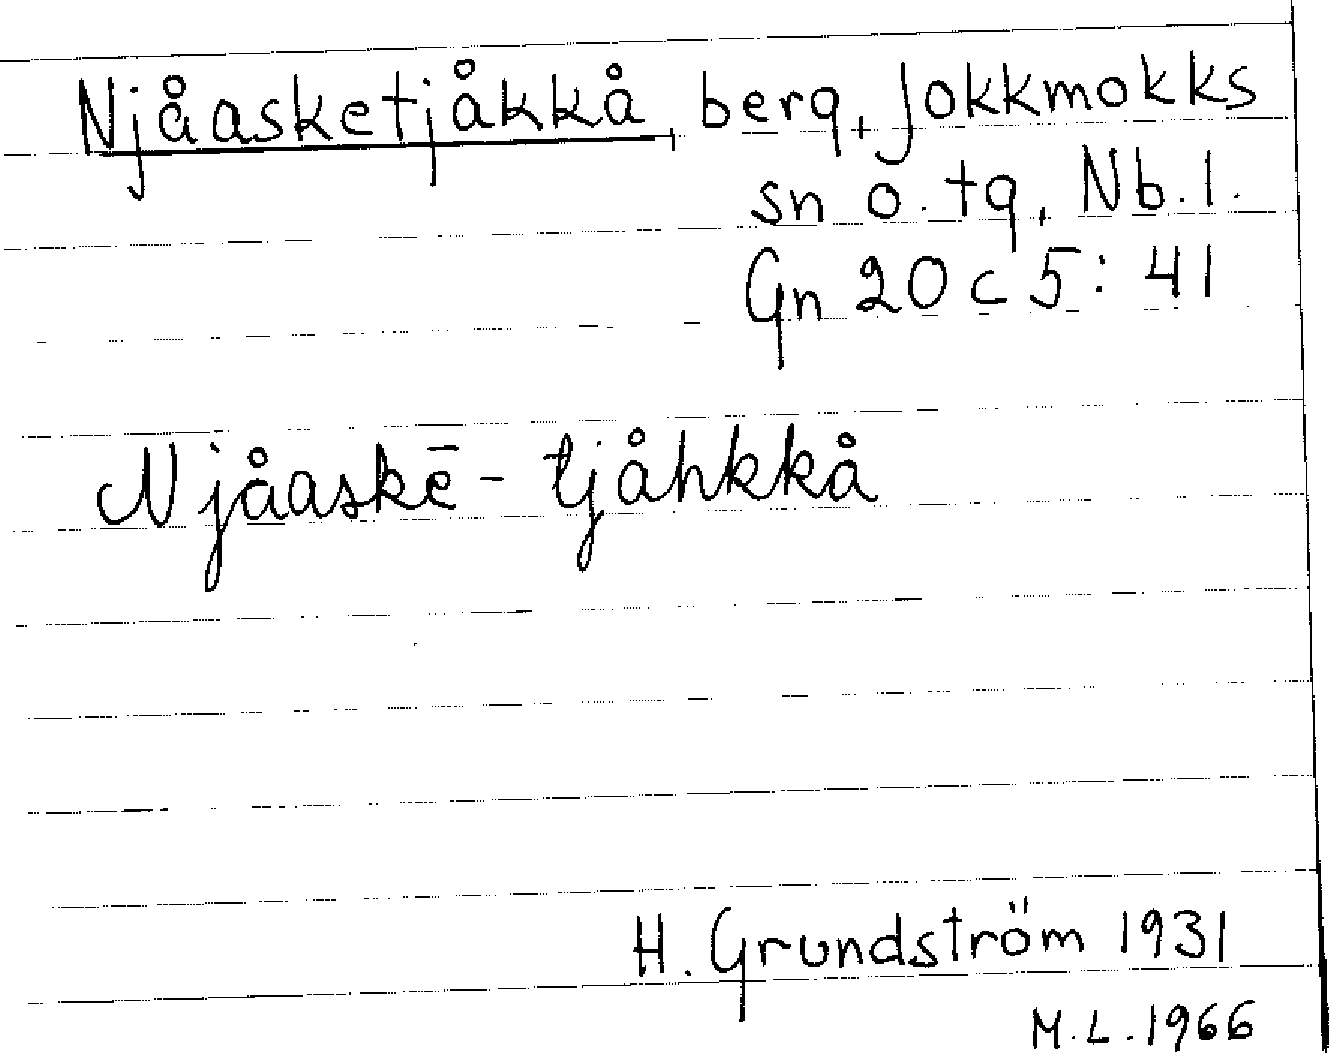 Njåasketjåkkå, berg, Jokkmokks
sn o. tg, Nb. l.
Gn 20 c 5: 41
Njåaskē- tjåhkkå
H. Grundström 1931
M. L. 1966